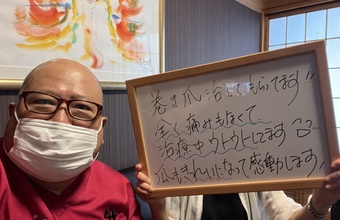 巻き爪治してもらってます!!
全く痛みもなくて、
治療中ウトウトしてます
爪もきれいになって感動します!